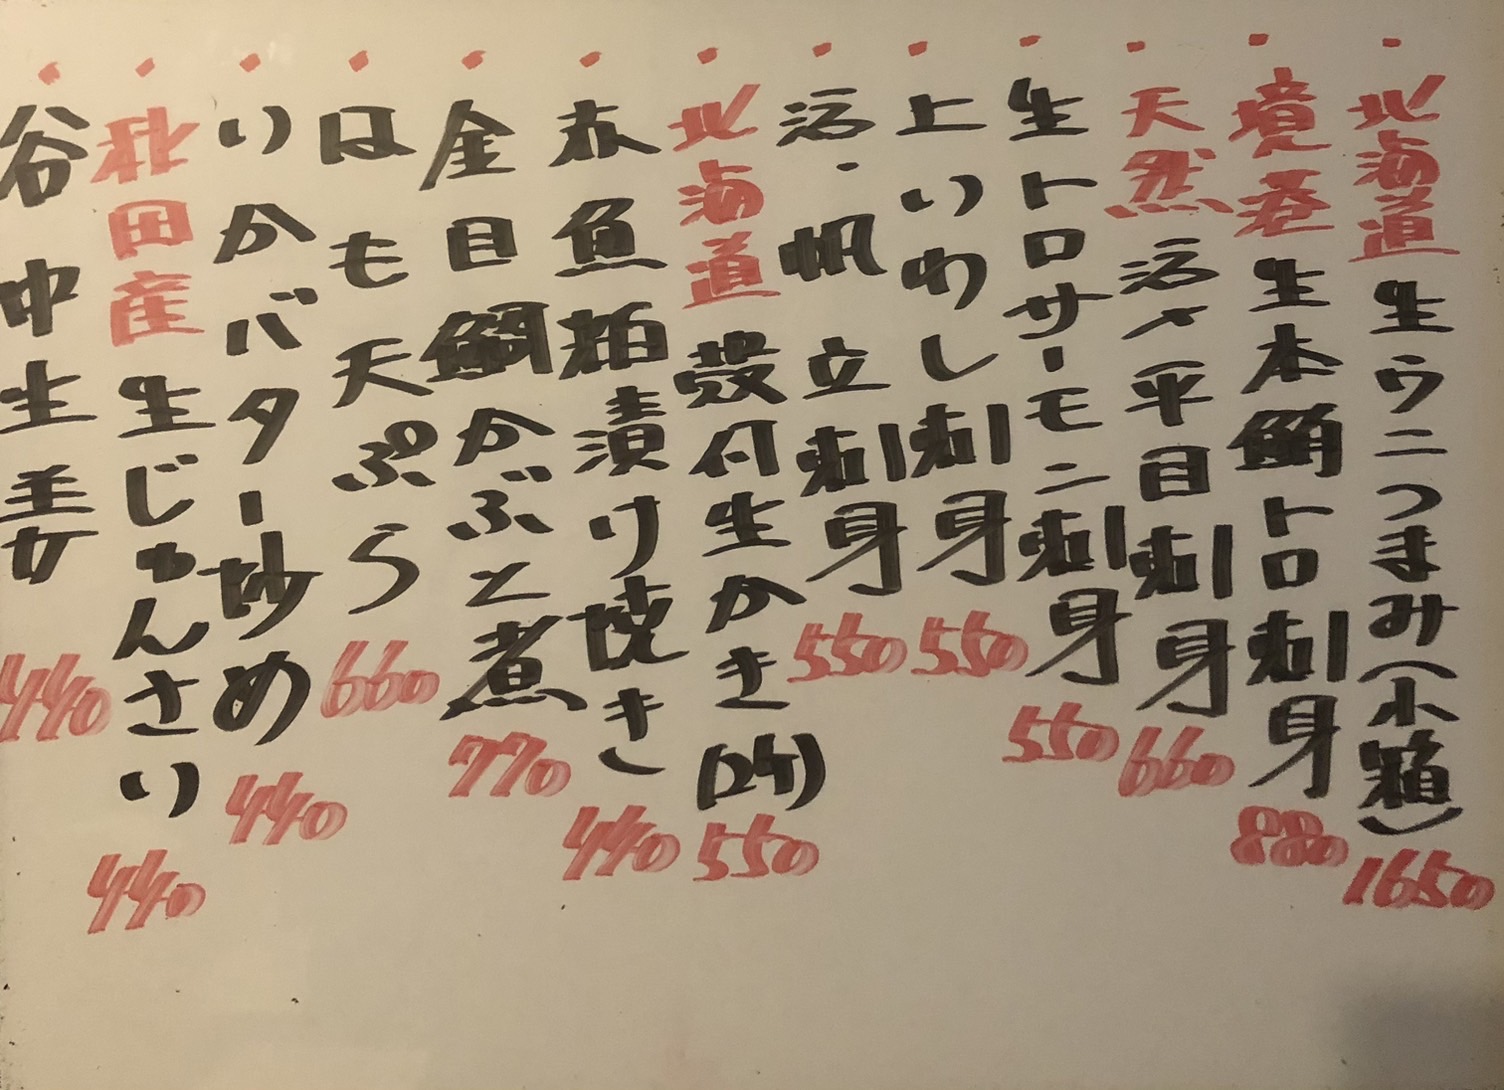 北海道生ウニつまみ(小箱) 1650
境港生本鮪トロ刺身 880
天然活〆平目刺身 660
生トロサーモン刺身 550
上いわし刺身 550
活・帆立刺身 550
北海道殻付生かき(2ケ) 550
赤魚粕漬け焼き 440
金目鯛かぶと煮 770
はも天ぷら 660
いかバター炒め 440
秋田産生じゅんさい 440
谷中生姜 440